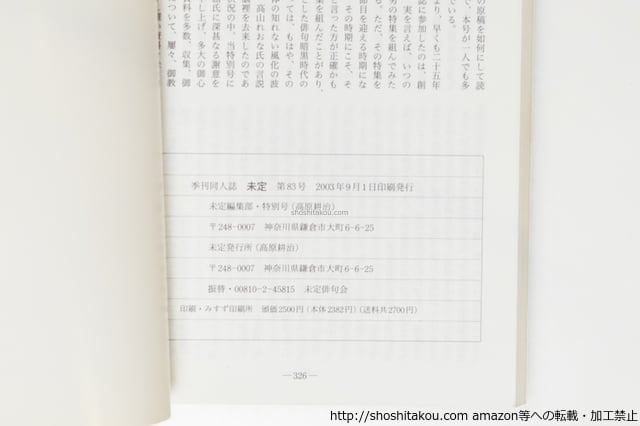 の原稿を如何にして読
で、本号が一人でも多
ている。
より、早くも二十五年
誌に参加したのは、創
実を言えば、いつの
男の特集を組んでみた
る。ただ、その特集を
節目を迎える時期にな
、その時期にこそ、そ
と言った方が正確かも
集を組んだことがあり、
ては、もはや、その
とした俳句暗黒時代の
体の知れない風化の波
、高山れおな氏の言説
脳裡を去来したのであ
状況の中、当特別号に
郎氏に深甚なる謝意を
し上げ、多大の御心
資料を多数、収集、御
について、屢々、御教
季刊同人誌 未定 第83号 2003年9月1日印刷発行
未定編集部・特別号(高原耕治)
shoshitakou.com
〒248-0007 神奈川県鎌倉市大町6-6-25
未定発行所(高原耕治)
〒248-0007 神奈川県鎌倉市大町6-6-25
振替・00810-2-45815 未定俳句会
印刷・みすず印刷所 頒価2500円(本体2382円)(送料共2700円)
—326—
http://shoshitakou.com amazon等への転載・加工禁止